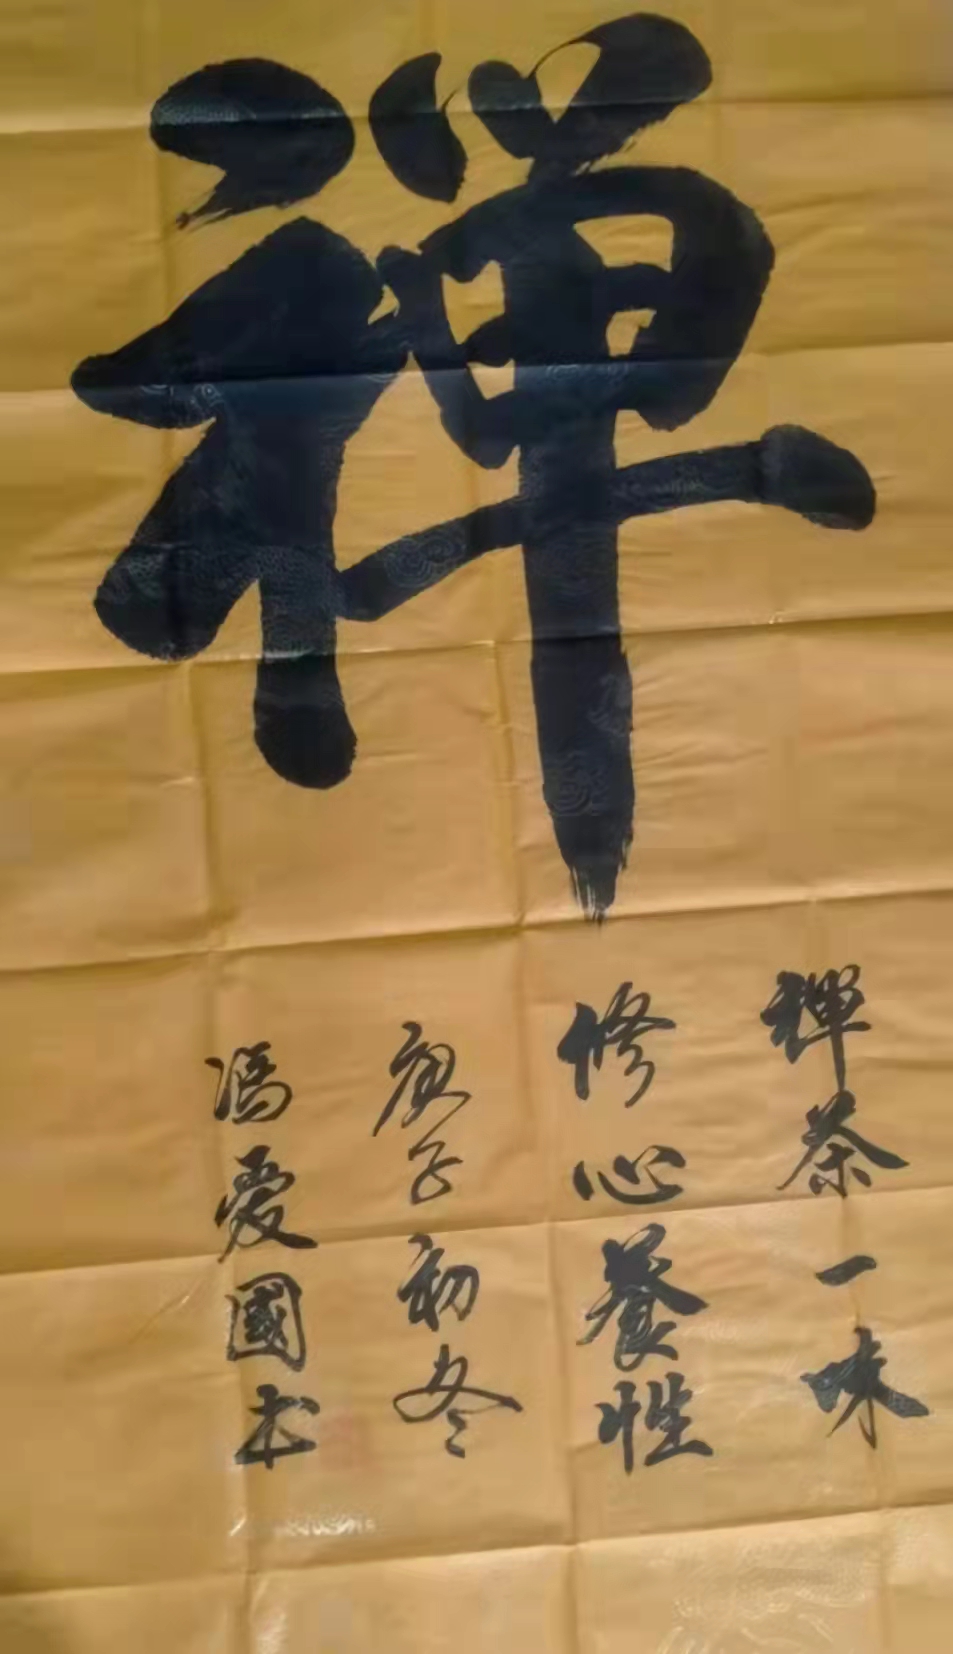 禪
禪茶一味
修心養性
庚子初冬
馮愛國书